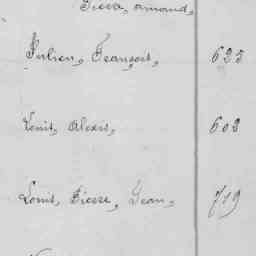 Pierre, Armand,
Julien, François, 625
Louis, Alexis, 602
Louis, Pierre, Jean, 719